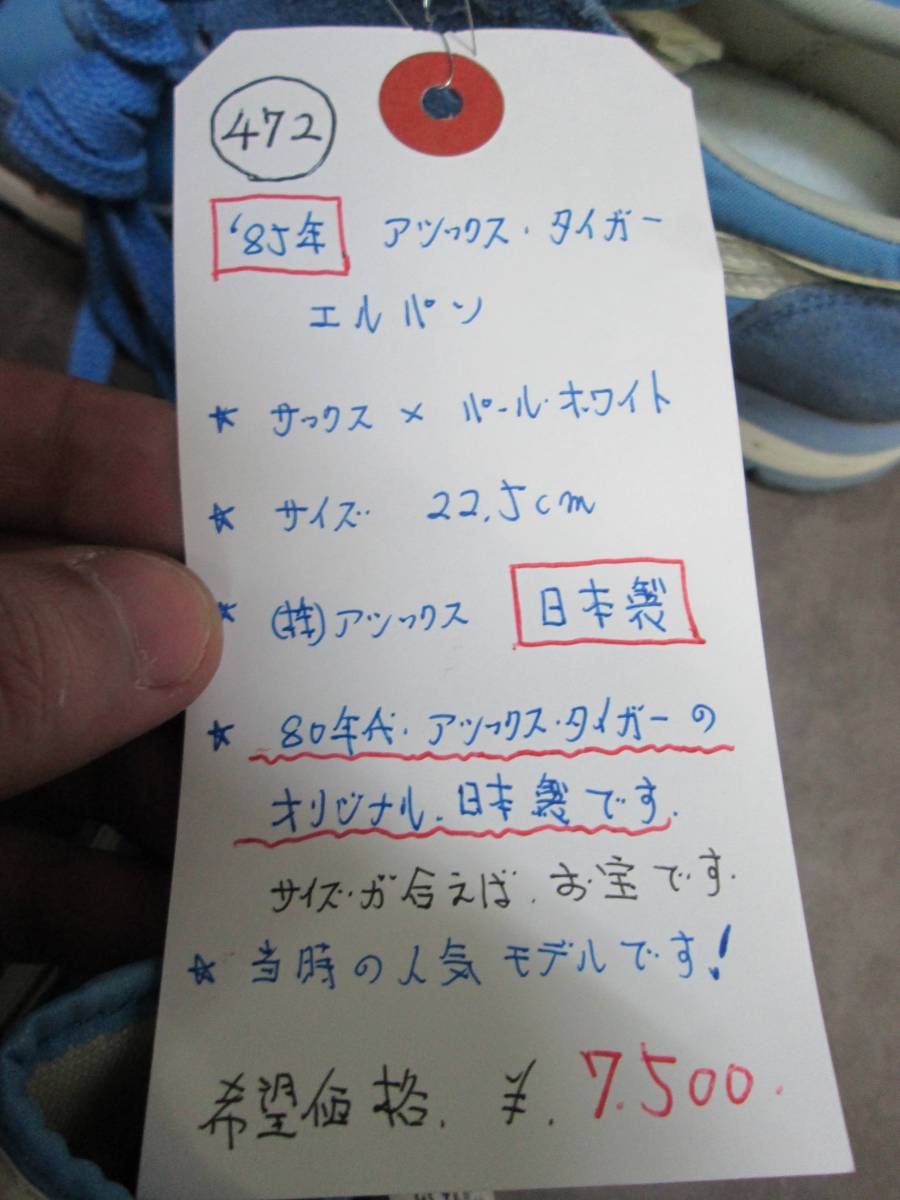 472
'85年 アシックス・タイガー
エルパン
★ サックス × パール・ホワイト
★ サイズ 22.5cm
★ (株)アシックス 日本製
★ 80年代・アシックス・タイガーの
オリジナル.日本製です.
サイズが合えば.お宝です.
★ 当時の人気モデルです!
希望価格. ¥.7.500.